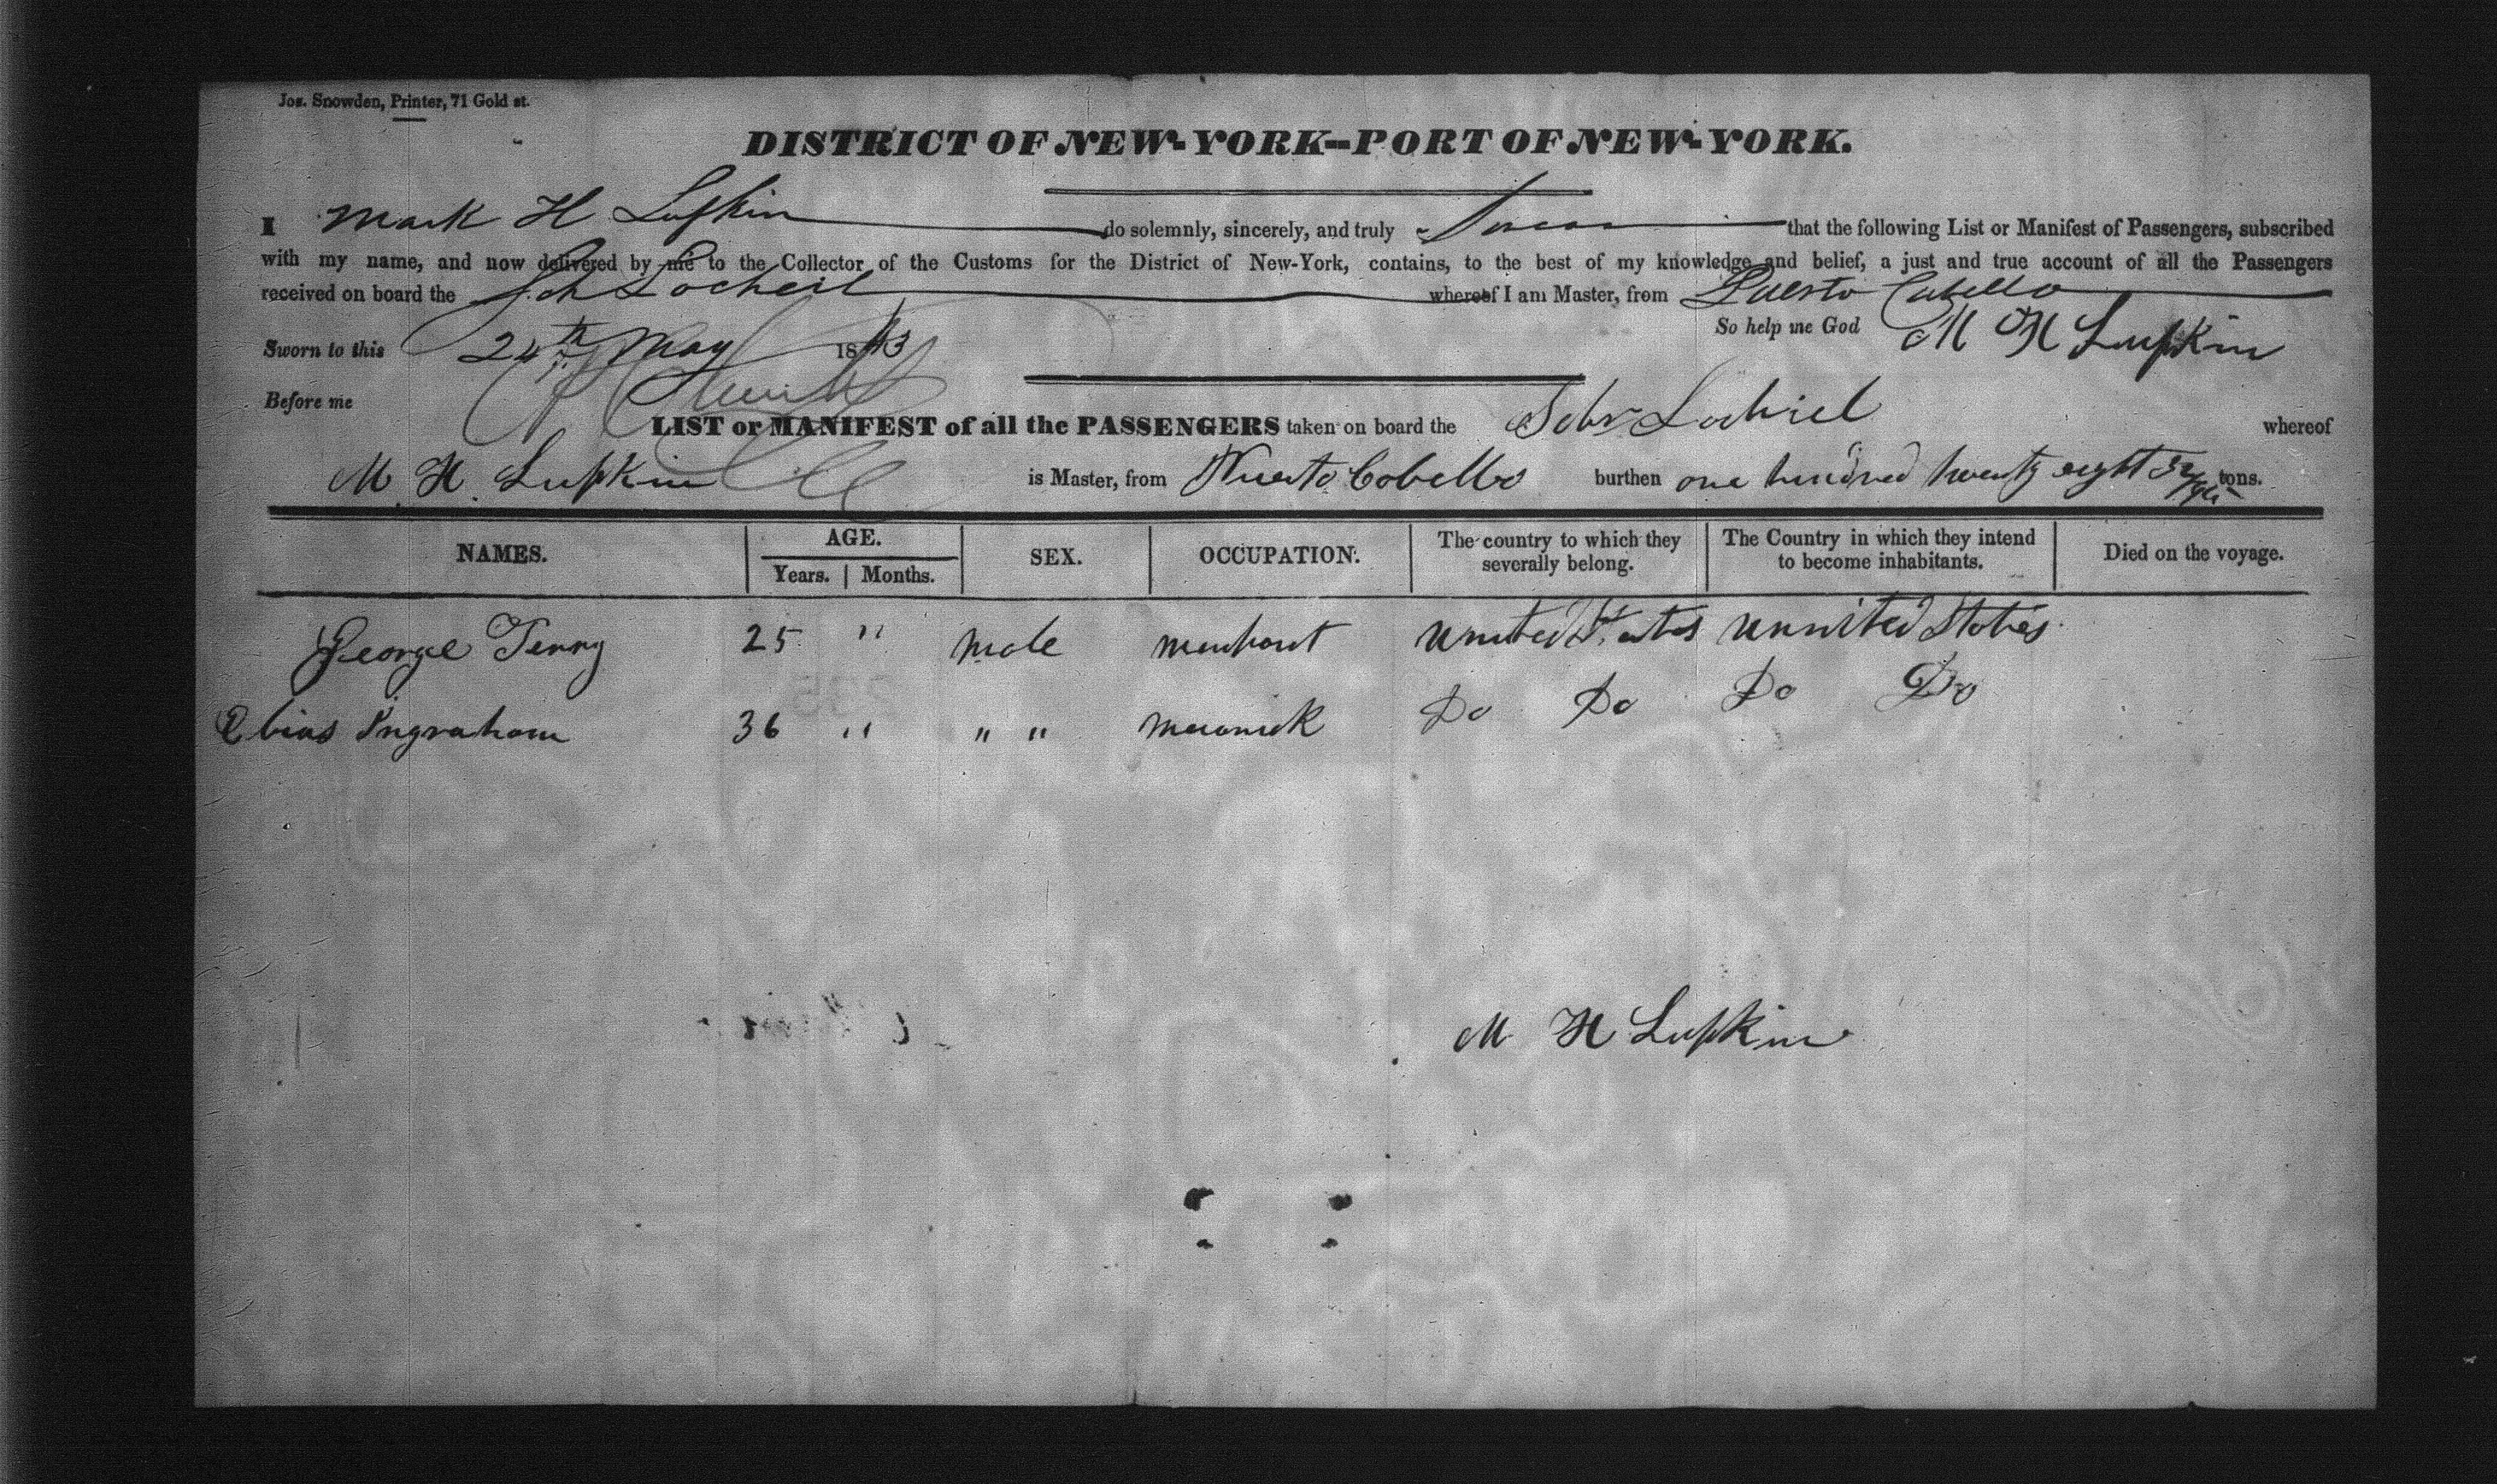 Jos. Snowden, Printer, 71 Gold st.
DISTRICT OF NEW-YORK--PORT OF NEW-YORK.
I Mark H Lufkin do solemnly, sincerely, and truly Swear that the following List or Manifest of Passengers, subscribed
with my name, and now delivered by me to the Collector of the Customs for the District of New-York, contains, to the best of my knowledge and belief, a just and true account of all the Passengers
received on board the Sch Locheil whereof I am Master, from Puerto Cabello
So help me God M H Lufkin
Sworn to this 24th May 1843
Before me
LIST or MANIFEST of all the PASSENGERS taken on board the Schr Lochiel whereof
M. H. Lufkin is Master, from Puerto Cobello burthen one hundred twenty eight tons.
NAMES. AGE. SEX. OCCUPATION. The country to which they severally belong. The Country in which they intend to become inhabitants. Died on the voyage.
Years. Months.
George Terry 25 " male merchant united States unnited States
Ingraham 36 " " " Do Do Do Do
M H Lufkin